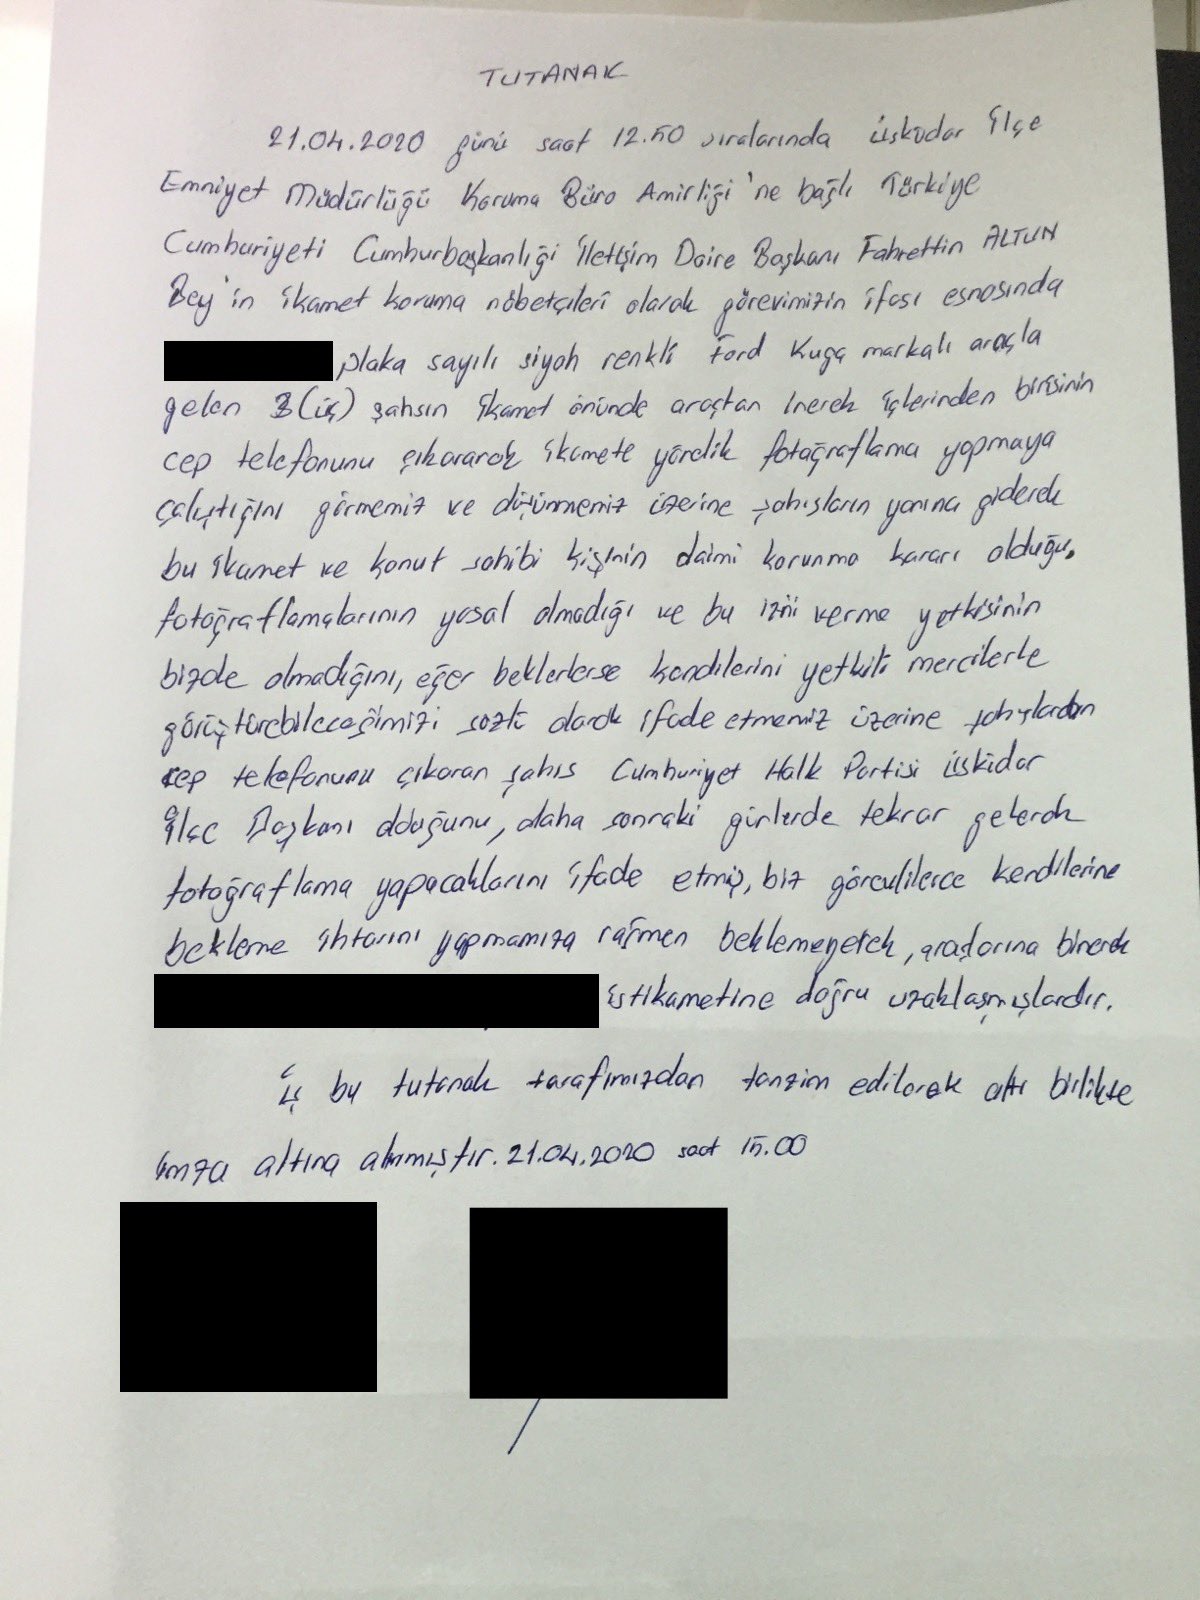 TUTANAK
21.04.2020 günü saat 12.50 sıralarında Üsküdar İlçe
Emniyet Müdürlüğü Koruma Büro Amirliği'ne bağlı Türkiye
Cumhuriyeti Cumhurbaşkanlığı İletişim Daire Başkanı Fahrettin ALTUN
Bey'in ikamet koruma nöbetçileri olarak görevimizin ifası esnasında
plaka sayılı siyah renkli Ford Kuga markalı araçla
gelen 3 (üç) şahsın ikamet önünde araçtan inerek içlerinden birisinin
cep telefonunu çıkararak ikamete yönelik fotoğraflama yapmaya
çalıştığını görmemiz ve düşünmemiz üzerine şahısların yanına giderek
bu ikamet ve konut sahibi kişinin daimi korunma kararı olduğu,
fotoğraflamalarının yasal olmadığı ve bu izni verme yetkisinin
bizde olmadığını, eğer beklerlerse kendilerini yetkili mercilerle
görüştürebileceğimizi sözlü olarak ifade etmemiz üzerine şahıslardan
cep telefonunu çıkaran şahıs Cumhuriyet Halk Partisi Üsküdar
İlçe Başkanı olduğunu, daha sonraki günlerde tekrar gelerek
fotoğraflama yapacaklarını ifade etmiş, biz görevlilerce kendilerine
bekleme ihtarını yapmamıza rağmen beklemeyerek, araçlarına binerek
istikametine doğru uzaklaşmışlardır.
İş bu tutanak tarafımızdan tanzim edilerek altı birlikte
imza altına alınmıştır. 21.04.2020 saat 15.00